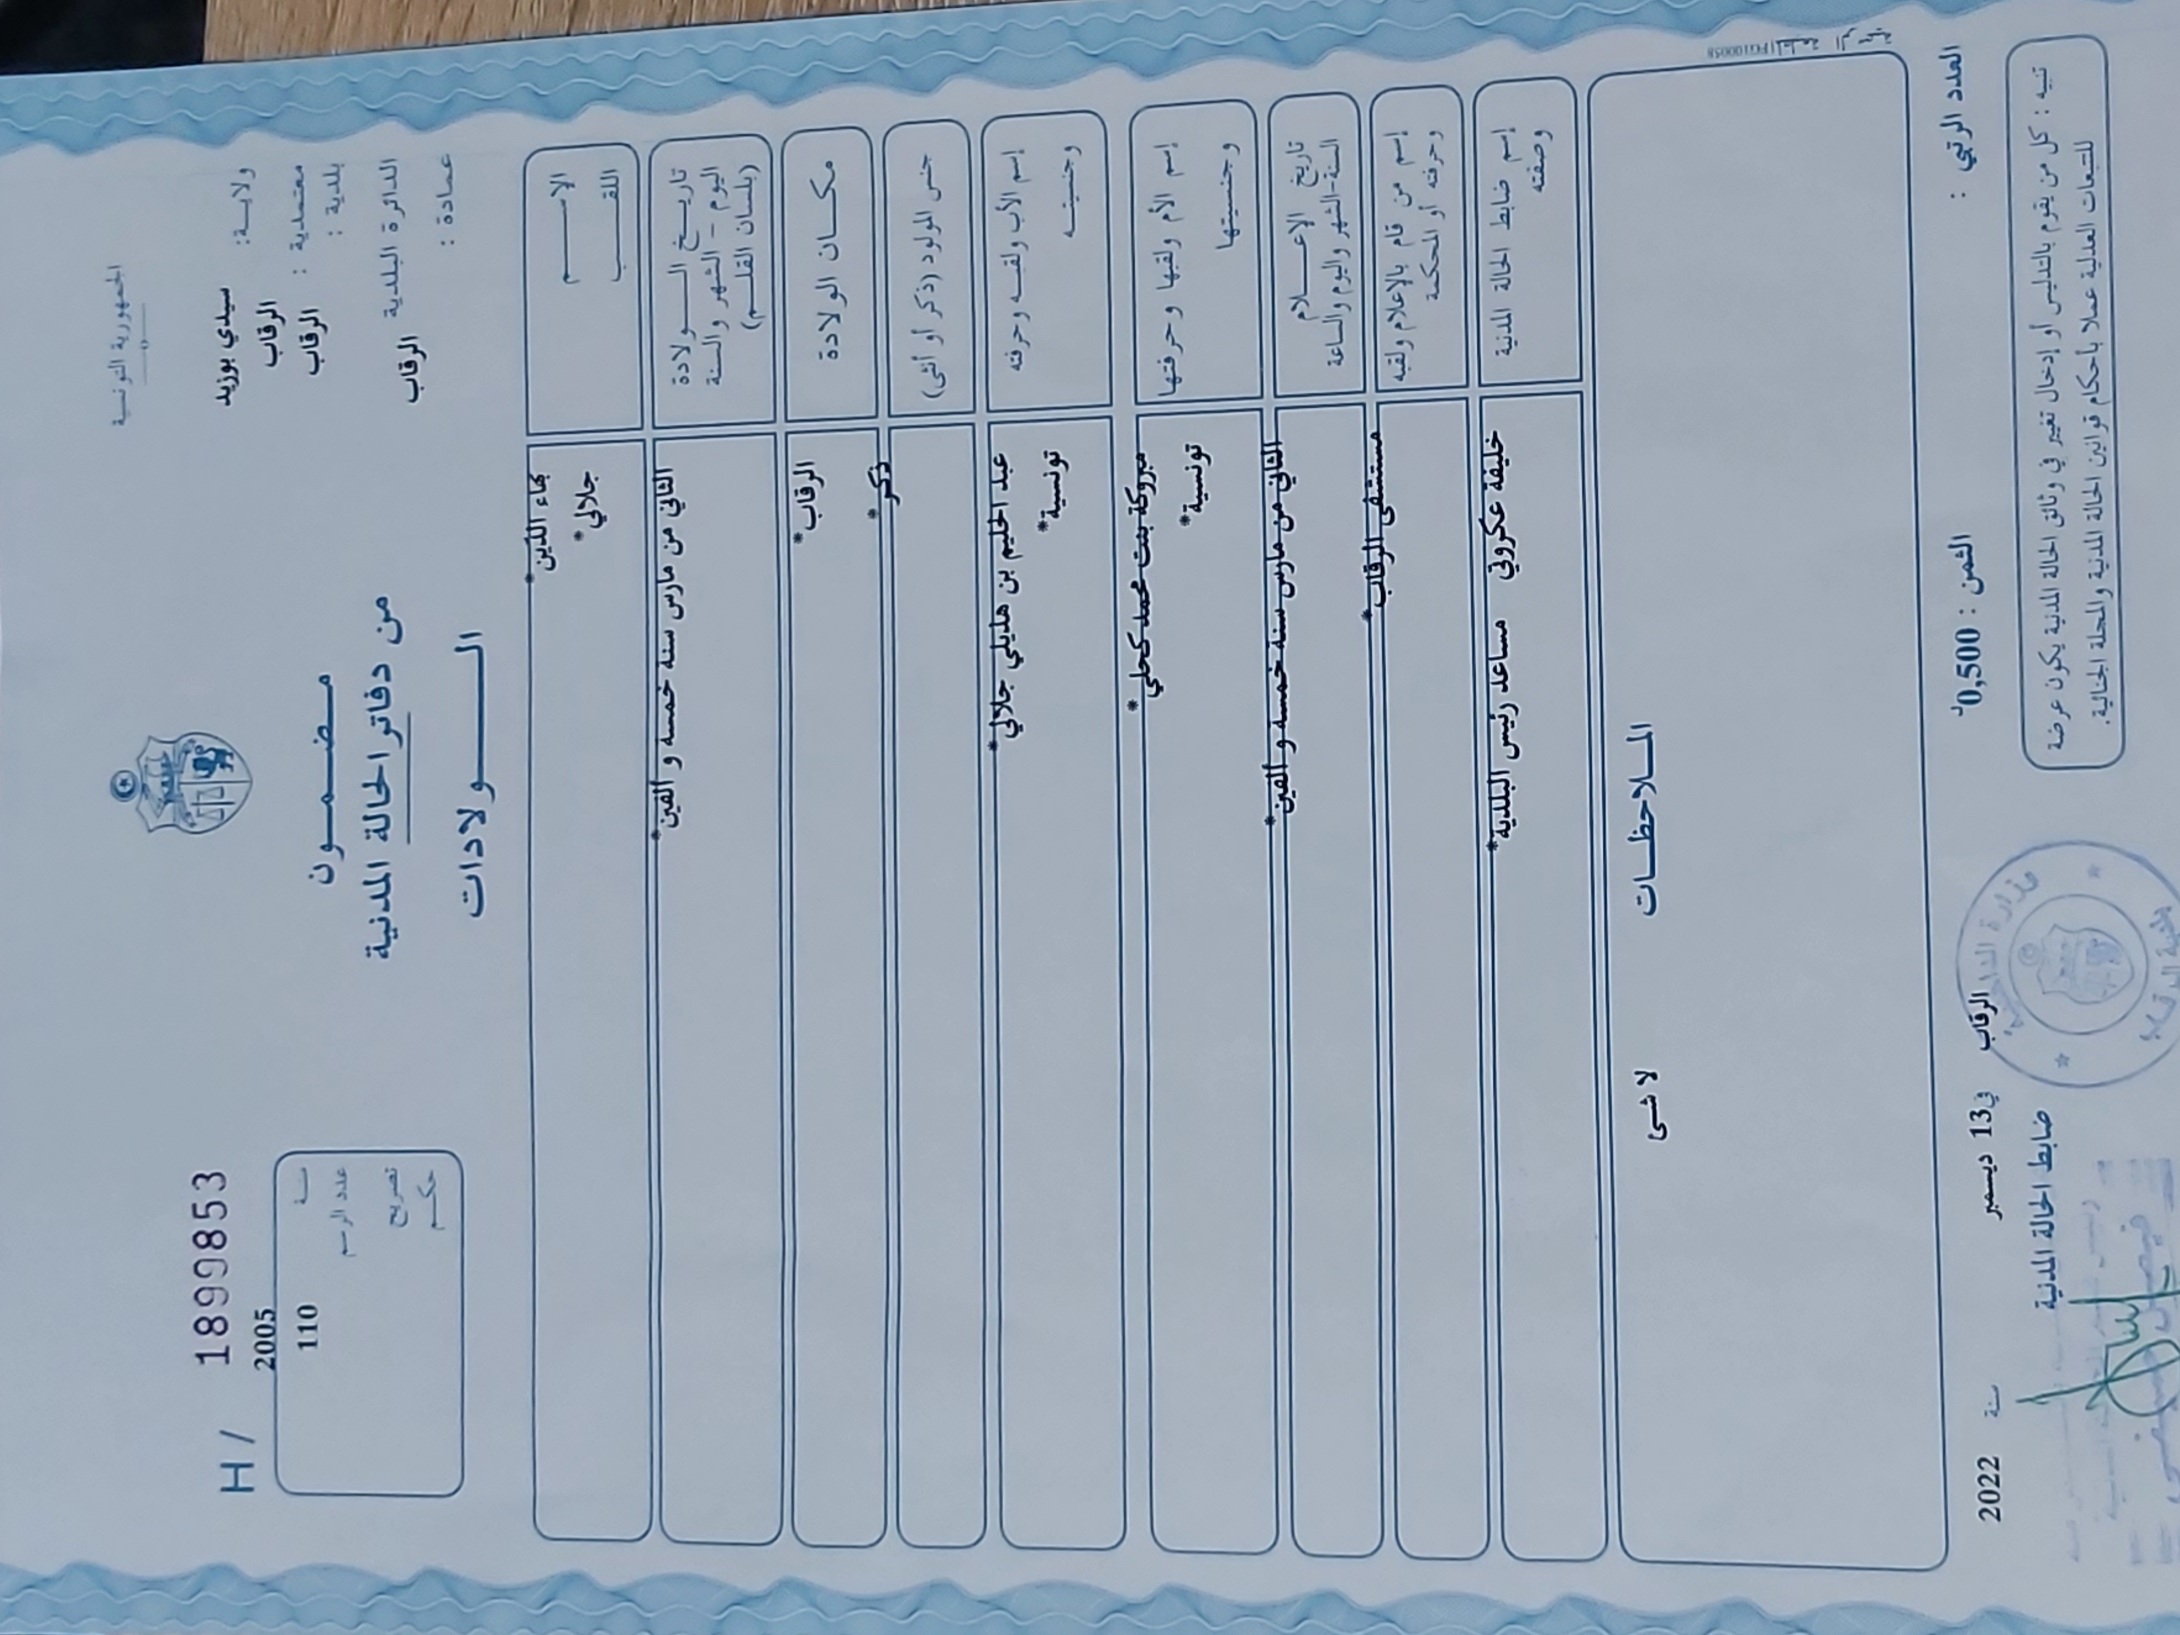 الجمهورية التونسية
ولاية: سيدي بوزيد
معتمدية : الرقاب
بلدية : الرقاب
الدائرة البلدية الرقاب
عمادة :
مضمون
من دفاتر الحالة المدنية
الولادات
H / 18998 53
2005 سنة
110 عدد الرسم
تصريح
حكم
الاسم بهاء الدين *
اللقب جلالي *
تاريخ الولادة الثاني من مارس سنة خمسة و الفين *
اليوم - الشهر والسنة
(بلسان القلم)
مكان الولادة الرقاب *
جنس المولود (ذكر أو أنثى) ذكر *
إسم الأب ولقبه وحرفته عبد الحليم بن هذيلي جلالي *
وجنسيته تونسية *
إسم الأم ولقبها وحرفتها مبروكة بنت محمد كحلي *
وجنسيتها تونسية *
تاريخ الإعلام الثاني من مارس سنة خمسة و الفين *
السنة-الشهر واليوم والساعة
إسم من قام بالإعلام ولقبه مستشفى الرقاب *
وحرفته أو المحكمة
إسم ضابط الحالة المدنية خليفة عكروتي مساعد رئيس البلدية *
وصفته
الملاحظات
لا شئ
العدد الرتبي :
الثمن : 0,500د
الرقاب في 13 ديسمبر سنة 2022
ضابط الحالة المدنية
تنبيه : كل من يقوم بالتدليس أو إدخال تغيير في وثائق الحالة المدنية يكون عرضة
للتتبعات العدلية عملا بأحكام قوانين الحالة المدنية والمجلة الجنائية.